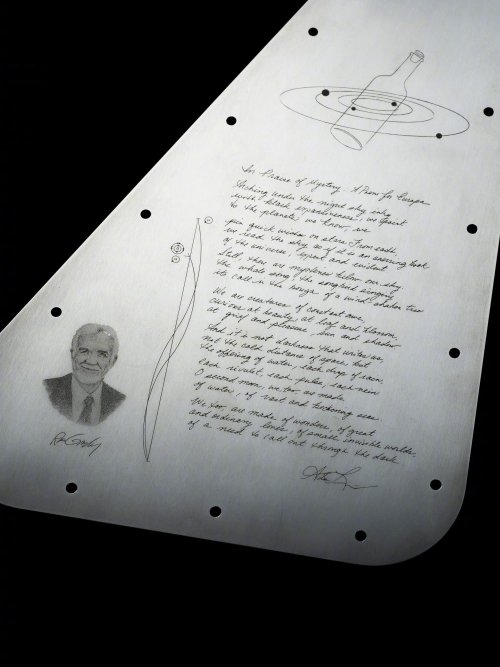 In Praise of Mystery: A Poem for Europa
Arching under the night sky inky
with black expansiveness, we point
to the planets we know, we
pin quick wishes on stars. From earth,
we read the sky as if it is an unerring book
of the universe, expert and evident.
Still, there are mysteries below our sky:
the whale song, the songbird singing
its call in the bough of a wind-shaken tree.
We are creatures of constant awe,
curious at beauty, at leaf and blossom,
at grief and pleasure, sun and shadow.
And it is not darkness that unites us,
not the cold distance of space, but
the offering of water, each drop of rain,
each rivulet, each pulse, each vein.
O second moon, we, too, are made
of water, of vast and beckoning seas.
We, too, are made of wonders, of great
and ordinary loves, of small invisible worlds,
of a need to call out through the dark.